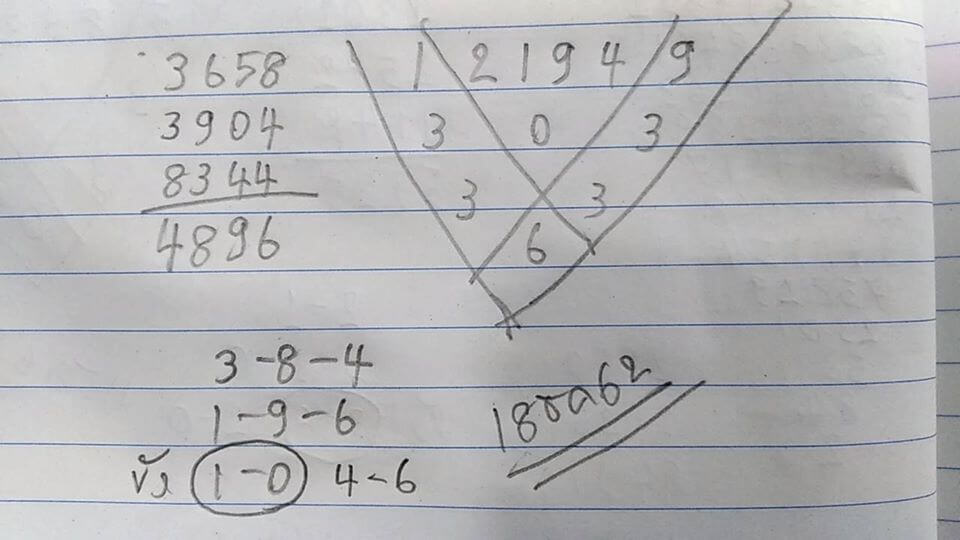 3658 1 2 1 9 4 9
3904 3 0 3
8344 3 3
4896 6
3-8-4
1-9-6
1-0 4-6